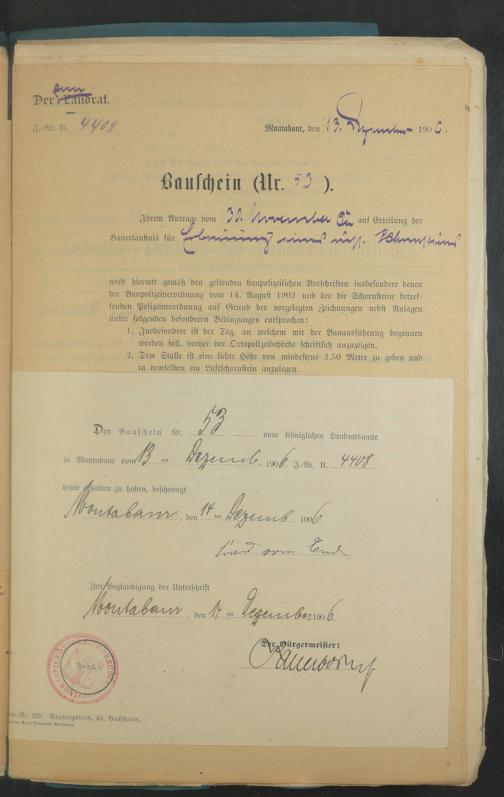 Der Landrat.
J.-Nr. B. 4408
Montabaur, den 13. Dezember 1906.
Bauschein (Nr. 53 ).
Ihrem Antrage vom 30. November auf Erteilung der
Bauerlaubnis für Erbauung eines
wird hiermit gemäß den geltenden baupolizeilichen Vorschriften insbesondere denen
der Baupolizeiverordnung vom 14. August 1902 und der die Schornsteine betref-
fenden Polizeiverordnung auf Grund der vorgelegten Zeichnungen nebst Anlagen
unter folgenden besonderen Bedingungen entsprochen:
1. Insbesondere ist der Tag, an welchem mit der Bauausführung begonnen
werden soll, vorher der Ortspolizeibehörde schriftlich anzuzeigen.
2. Dem Stalle ist eine lichte Höhe von mindestens 2,50 Meter zu geben und
in demselben ein Luftschornstein anzulegen.
Den Bauschein Nr. 53 vom Königlichen Landratsamte
in Montabaur vom 13 ten Dezemb. 1906 J.-Nr. B. 4408
heute erhalten zu haben, bescheinigt
Montabaur, den 14 ten Dezemb 1906.
Zur Beglaubigung der Unterschrift
Montabaur, den 14 ten Dezember 1906.
Der Bürgermeister:
Nr. 229. Empfangsbesch. üb. Bauscheine.